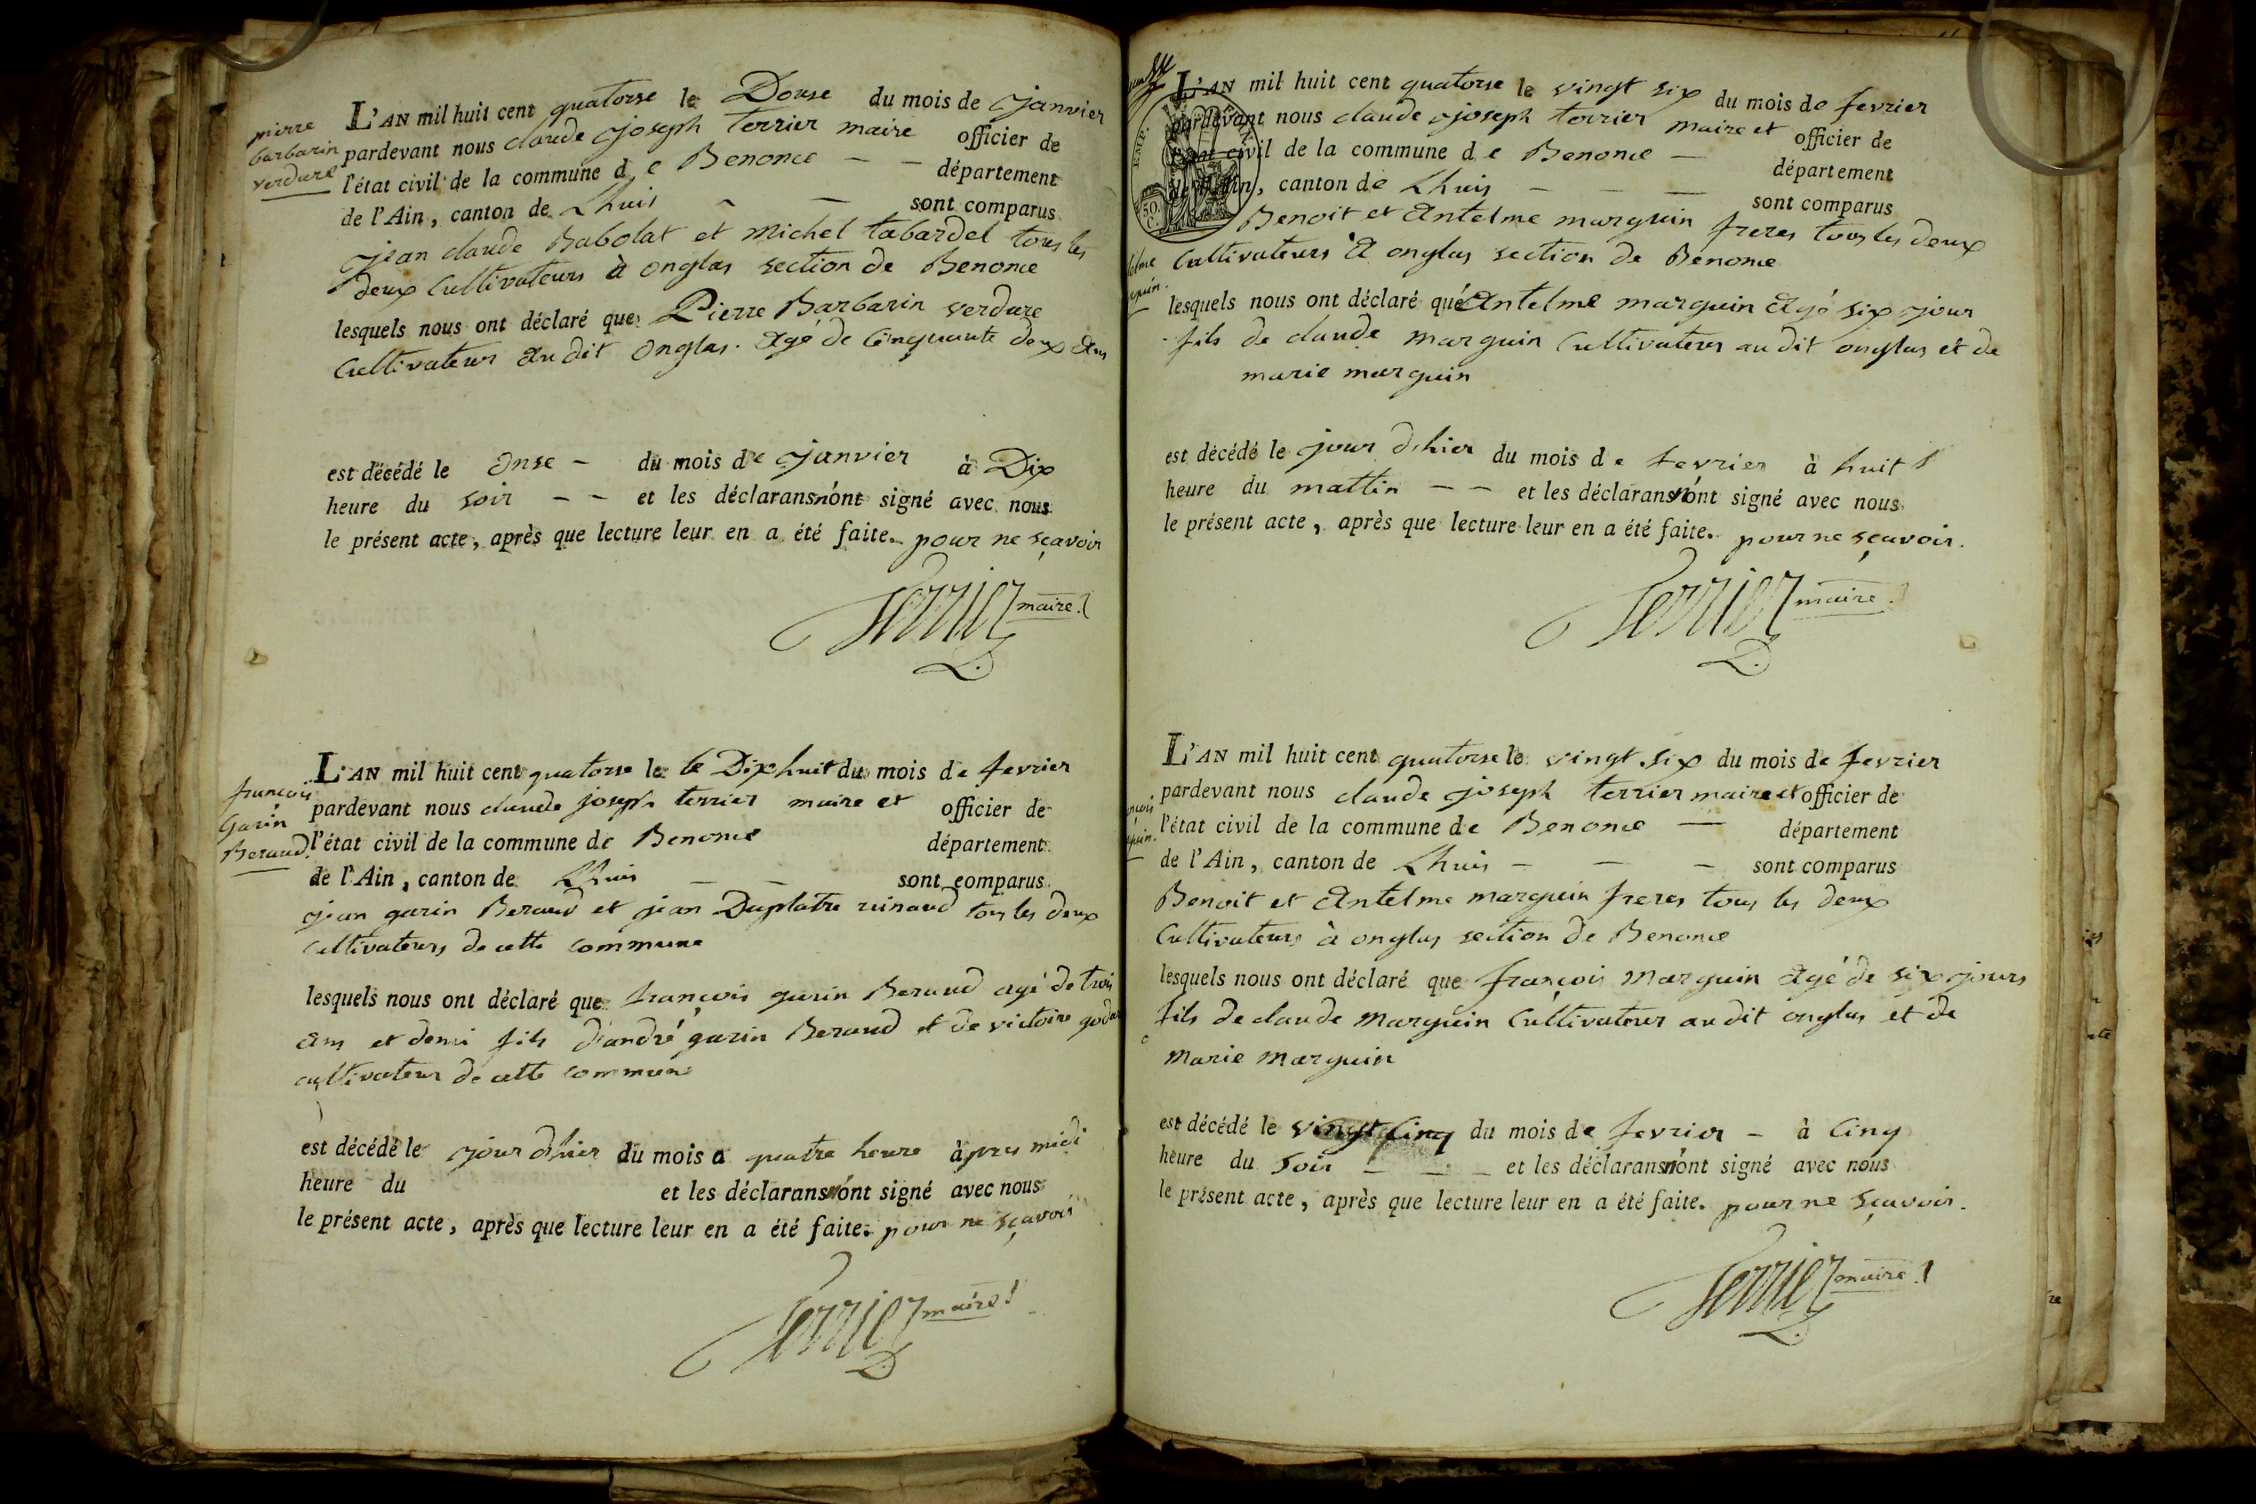 L'AN mil huit cent quatorse le Douse du mois de janvier
pierre
barbarin
verdure
pardevant nous claude joseph terrier maire officier de
l'état civil de la commune de Benonce — — département
de l'Ain, canton de Lhuis - — sont comparus
jean claude Babolat et Michel tabardel tous les
deux Cultivateurs à onglas section de Benonce
lesquels nous ont déclaré que Pierre Barbarin verdure
Cultivateur au dit onglas. agé de Cinquante deux ans
est décédé le onse - du mois de janvier à Dix
heure du soir - - et les déclarans n'ont signé avec nous
le présent acte, après que lecture leur en a été faite. pour ne sçavoir
Terrier maire
L'AN mil huit cent quatorse le le Dixhuit du mois de fevrier
françois
Garin
Beraud.
pardevant nous claude joseph terrier maire et officier de
l'état civil de la commune de Benonce département
de l'Ain, canton de Lhuis — — sont comparus
jean garin Beraud et jean Duplatre ruinaud tous les deux
cultivateurs de cette commune
lesquels nous ont déclaré que françois garin Beraud agé de trois
ans et demi fils d'andré garin Beraud et de victoire
cultivateur de cette commune
est décédé le jour d'hier du mois a quatre heure après midi
heure du et les déclarans n'ont signé avec nous
le présent acte, après que lecture leur en a été faite. pour ne sçavoir
Terrier maire
L'AN mil huit cent quatorse le vingt six du mois de fevrier
pardevant nous claude joseph terrier maire et officier de
l'état civil de la commune de Benonce — département
de l'Ain, canton de Lhuis — — — sont comparus
50.
C.
Benoit et Antelme marguin freres tous les deux
Cultivateurs à onglas section de Benonce
lesquels nous ont déclaré que Antelme marguin agé six jour
fils de claude marguin Cultivateur au dit onglas et de
marie marguin
est décédé le jour d'hier du mois de fevrier à huit
heure du mattin - - et les déclarans n'ont signé avec nous
le présent acte, après que lecture leur en a été faite. pour ne sçavoir.
Terrier maire
L'AN mil huit cent quatorse le vingt six du mois de fevrier
pardevant nous claude joseph terrier maire et officier de
l'état civil de la commune de Benonce — département
de l'Ain, canton de Lhuis - — - sont comparus
Benoit et Antelme marguin freres tous les deux
Cultivateurs à onglas section de Benonce
lesquels nous ont déclaré que françois Marguin agé de six jours
fils de claude Marguin Cultivateur au dit onglas et de
Marie Marguin
est décédé le vingt Cinq du mois de fevrier - à Cinq
heure du soir - - - et les déclarans n'ont signé avec nous
le présent acte, après que lecture leur en a été faite. pour ne sçavoir.
Terrier maire